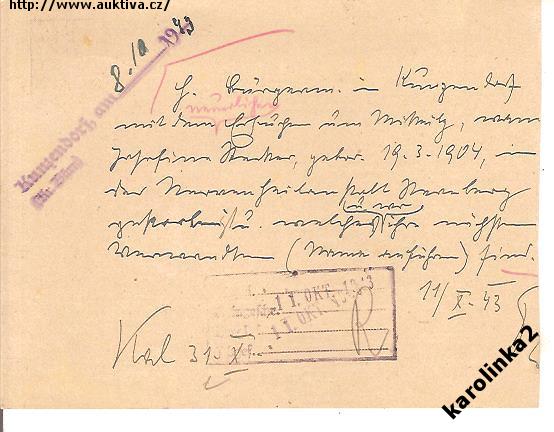 http://www.auktiva.cz/
8. 10 1943
Kunzendorf, am
H. Bürgerm. in Kunzendorf
neuerlichen
mit dem Ersuchen um Mitteilg, wann
Josefine, gebor. 19.3.1904, in
der Nervenheilanstalt Sternberg
u. wo
gestorben ist u. welches ihre nächsten
Verwandten (Name anführen) sind.
11/X. 43
11. OKT. 1943
11. OKT.
Kal 31. X.
R
karolinka2